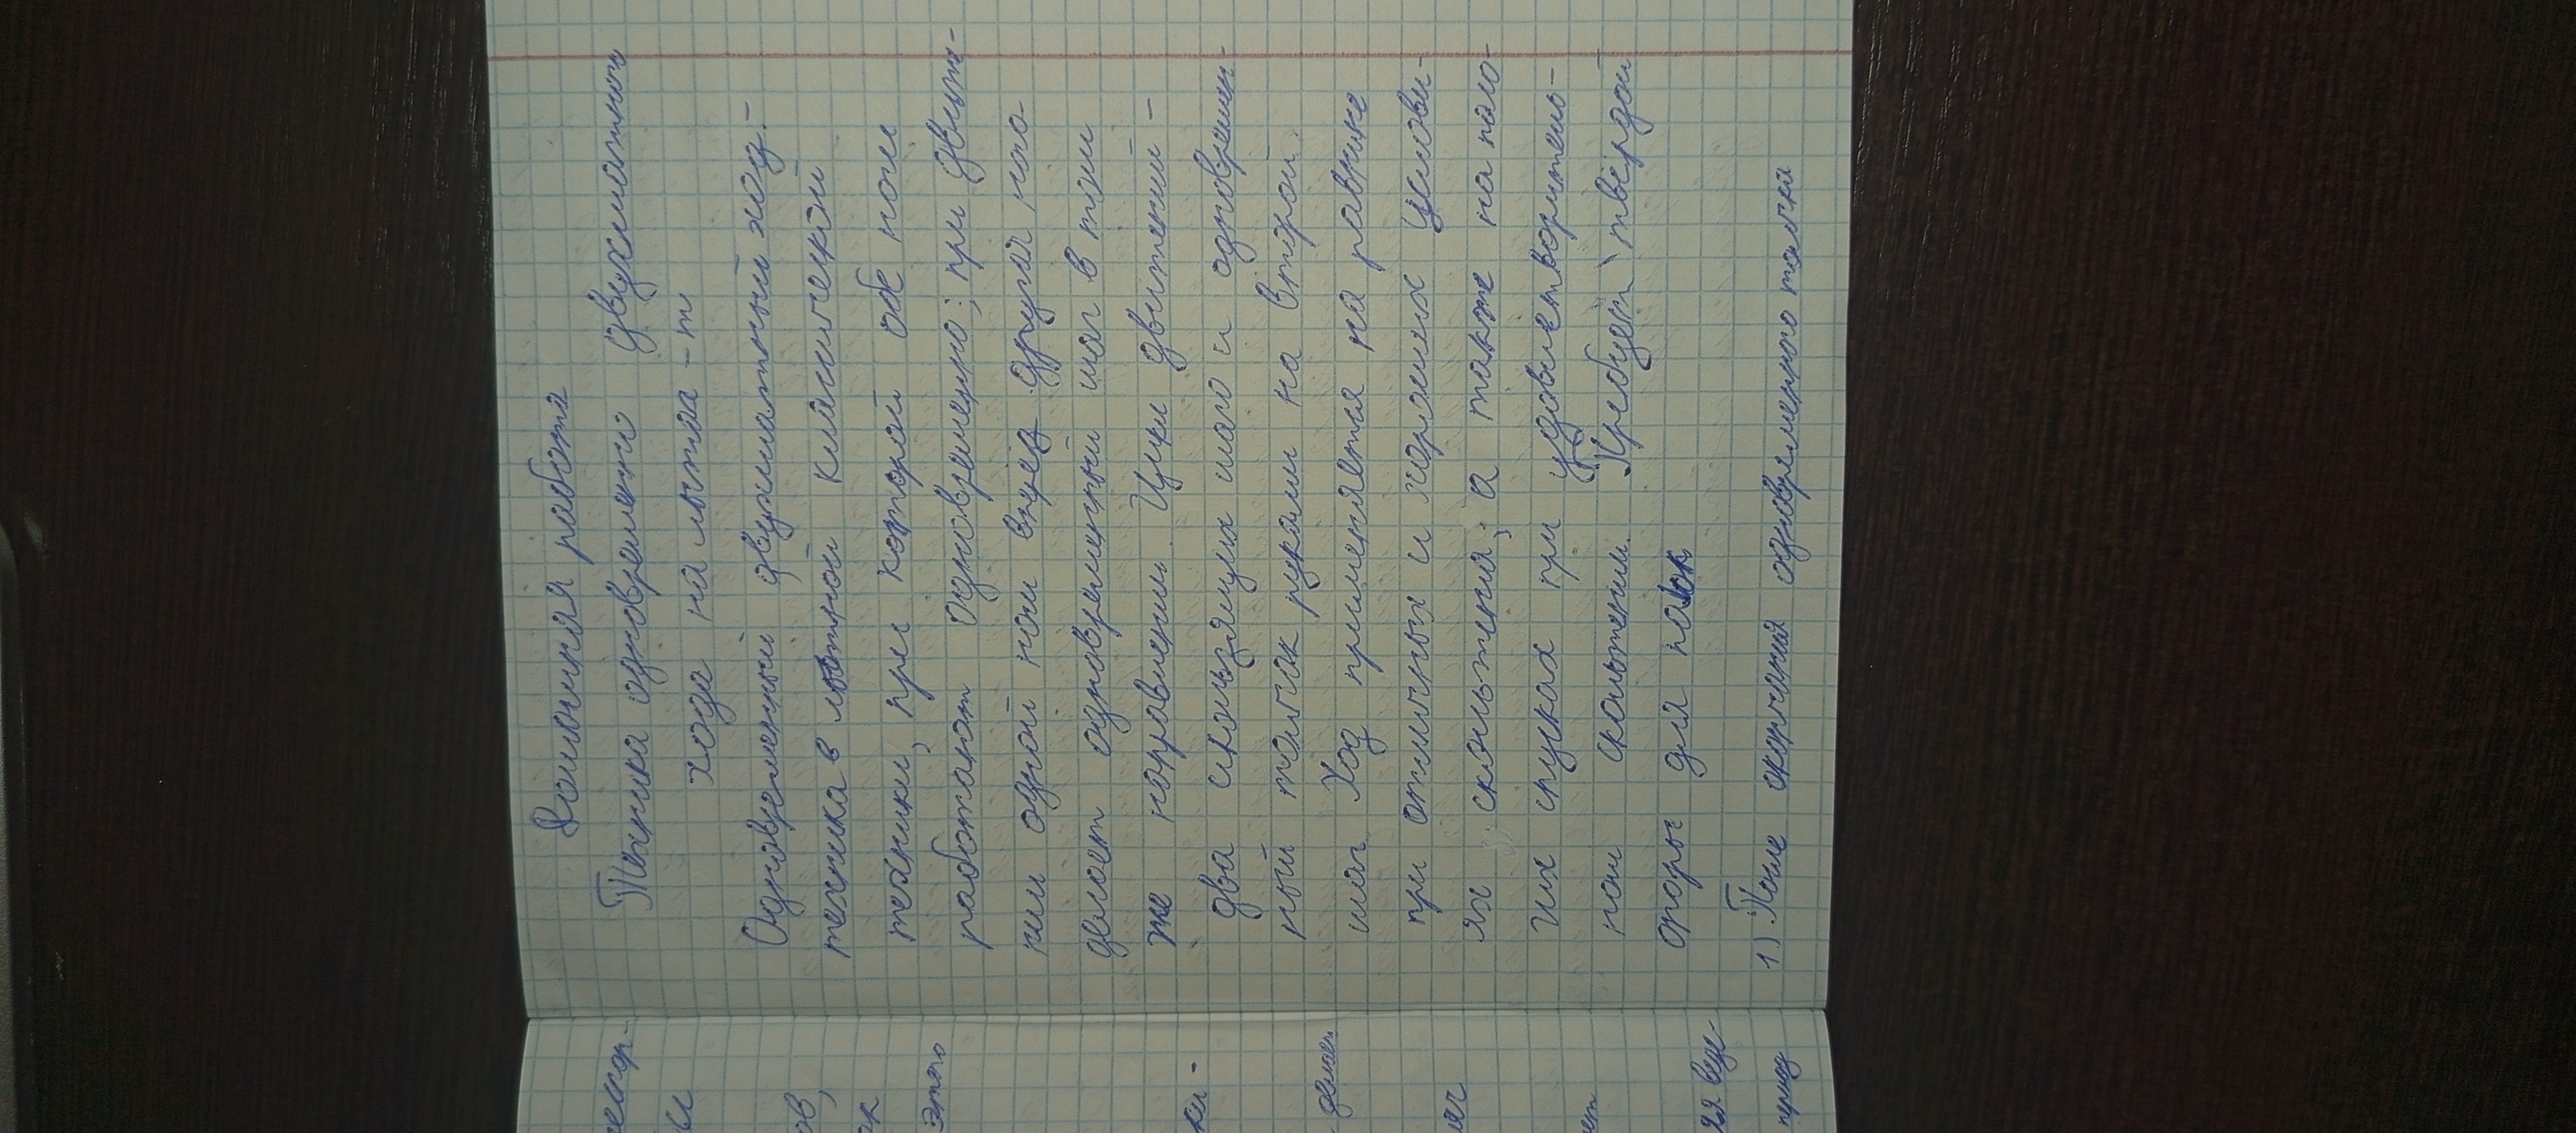 Домашняя работа
Техника одновременно двухшажного
хода на лыжа-т
Одновременный двухшажный ход-
техника в лыжной классической
техники, при которой обе ноги
работают одновременно; при движе-
нии одной ноги вперед другая но-
делает одновременный шаг в том
же направлении. Цикл движений -
два скользящих шага и одновремен-
ный толчок руками на второй
шаг. Ход применяется на равнине
при отличных и хороших услови-
ях скольжения, а также на поло-
гих спусках при удовлетворитель-
ном скольжении. Требует твёрдой
опоры для палок
1) После окончания одновременного толчка
ов,
ок
этого
ки-
делает
ет
перед